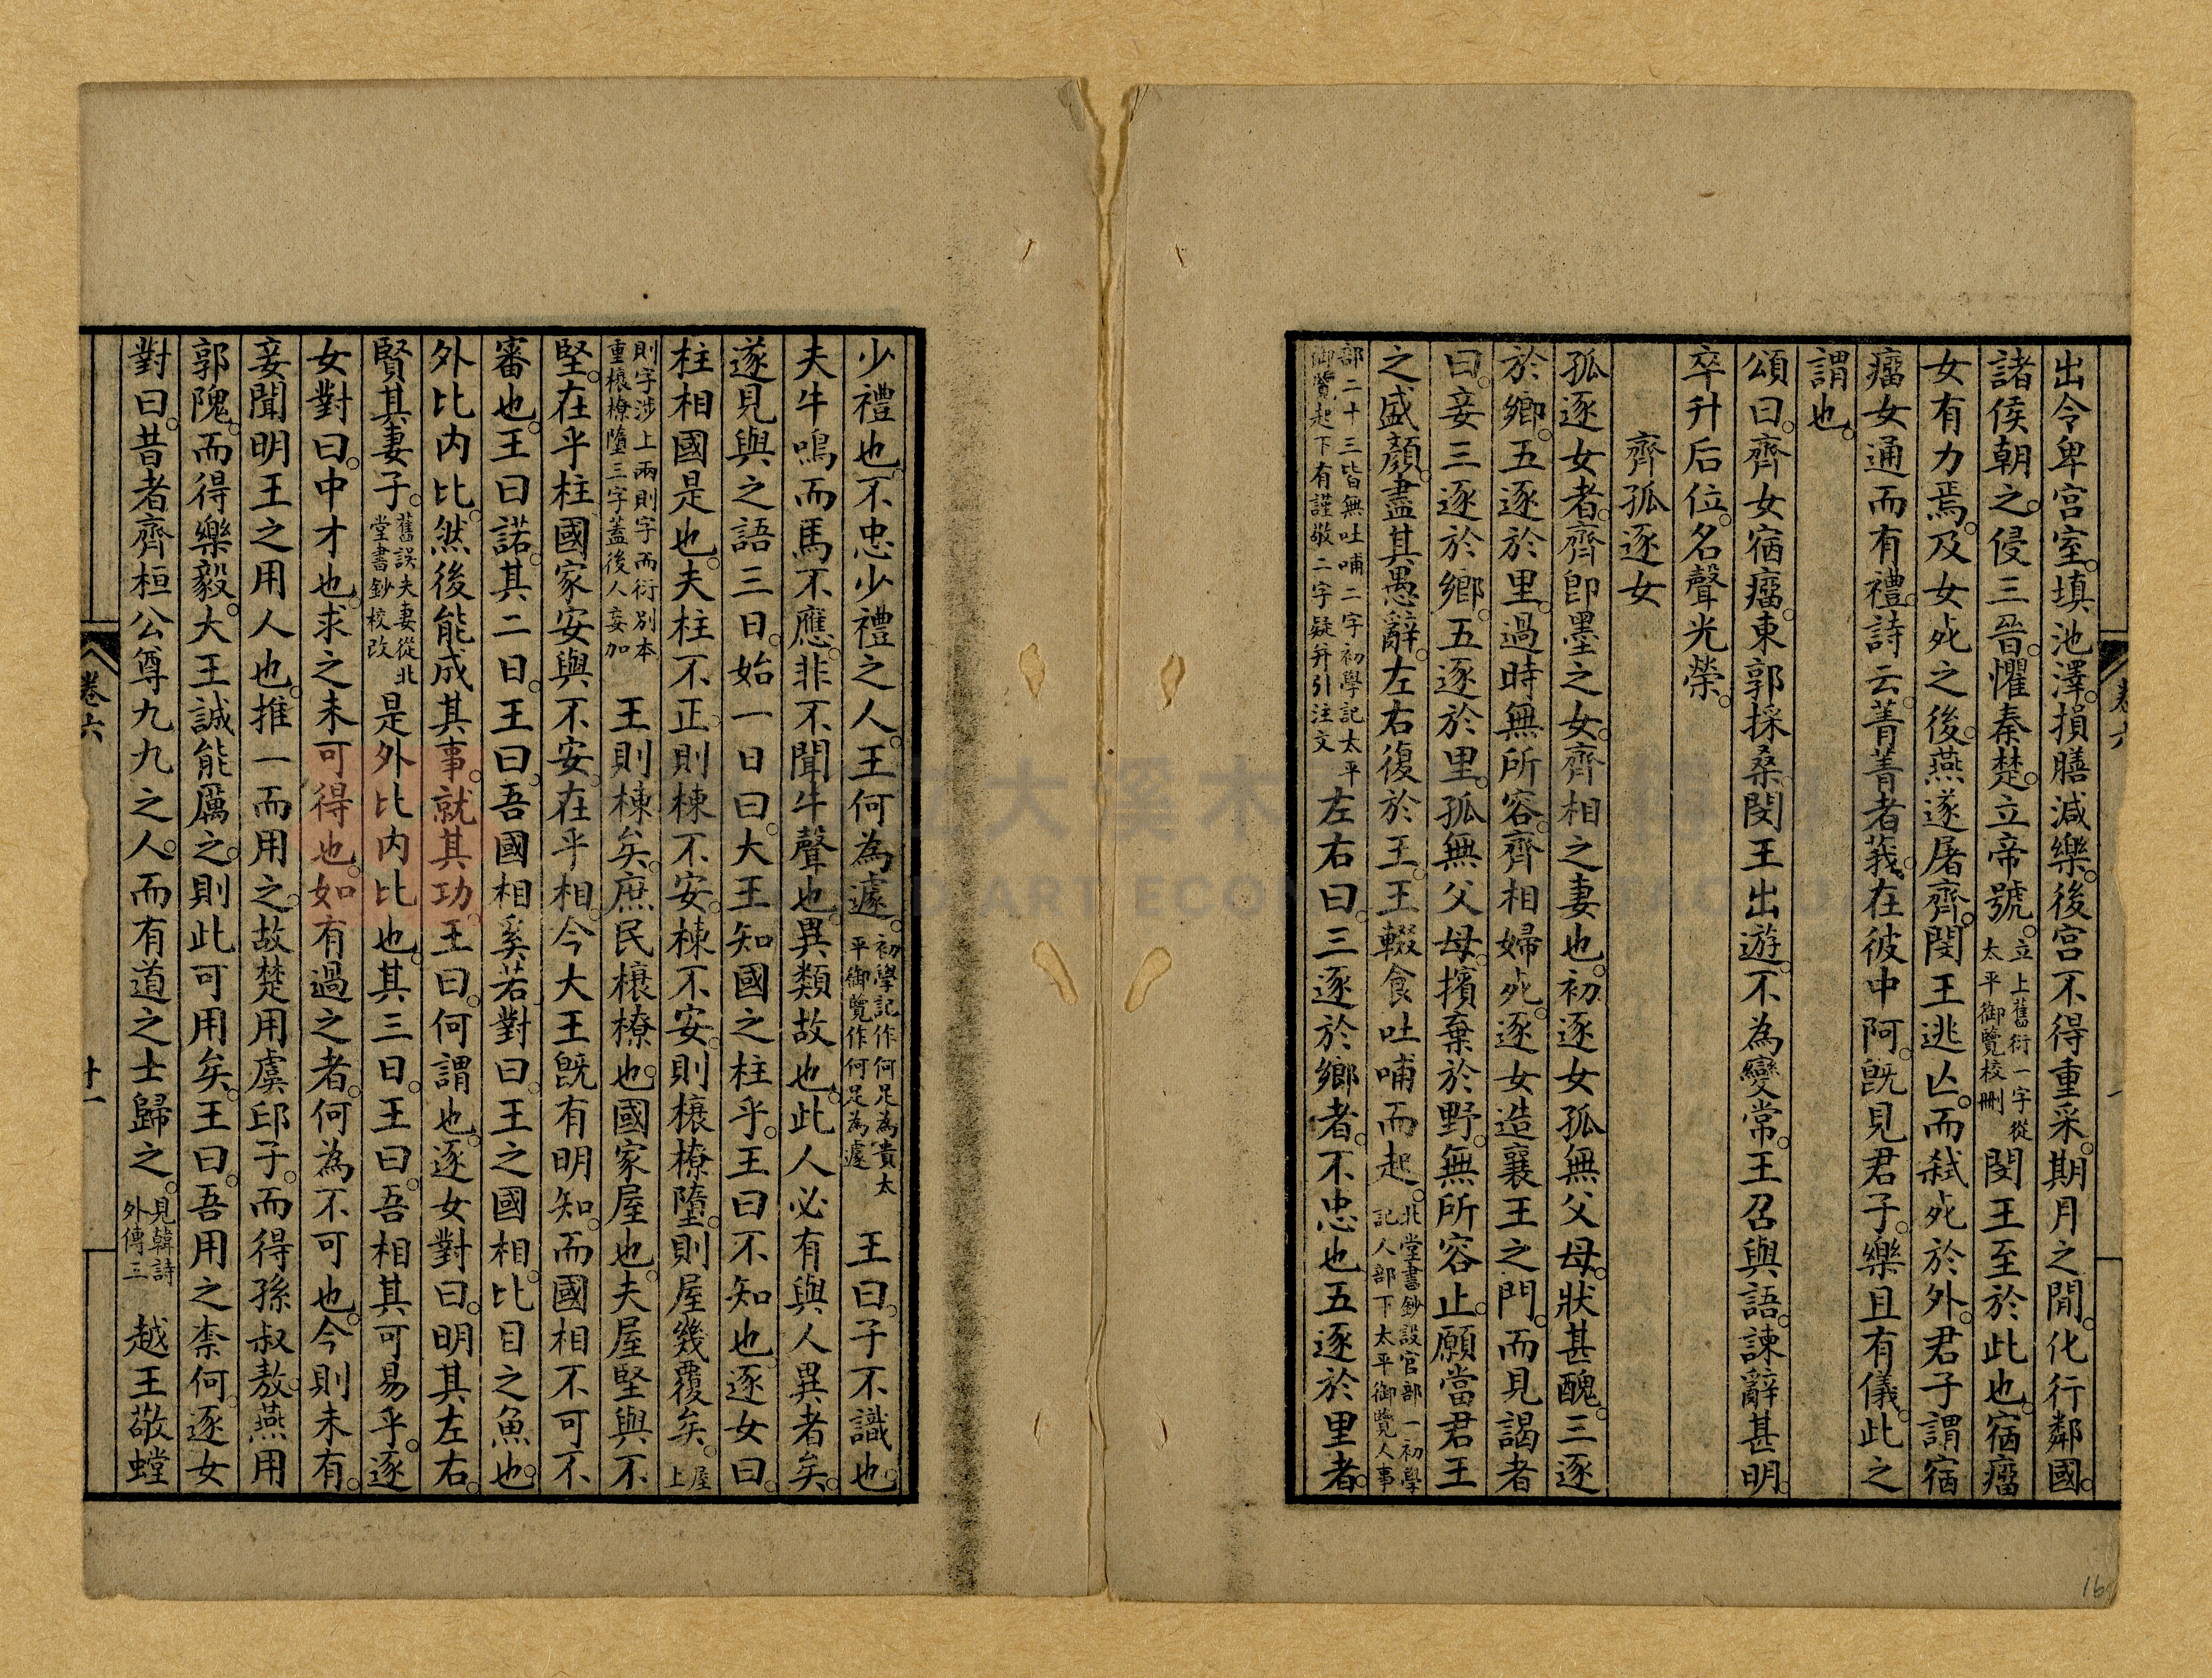 出令卑宮室。填池澤。損膳減樂。後宮不得重采。期月之閒。化行鄰國。
諸侯朝之。侵三晉。懼秦楚。立帝號。立上舊衍一字從太平御覽校刪閔王至於此也。宿瘤
女有力焉。及女死之後。燕遂屠齊。閔王逃亾。而弑死於外。君子謂宿
瘤女通而有禮。詩云。菁菁者莪。在彼中阿。旣見君子。樂且有儀。此之
謂也。
頌曰。齊女宿瘤。東郭採桑。閔王出遊。不為變常。王召與語。諫辭甚明。
卒升后位。名聲光榮。
齊孤逐女
孤逐女者。齊卽墨之女。齊相之妻也。初。逐女孤無父母。狀甚醜。三逐
於鄉。五逐於里。過時無所容。齊相婦死。逐女造襄王之門。而見謁者
曰。妾三逐於鄉。五逐於里。孤無父母。擯棄於野。無所容止。願當君王
之盛顏。盡其愚辭。左右復於王。王輟食吐哺而起。北堂書鈔設官部一初學記人部下太平御覽人事
部二十三皆無吐哺二字初學記太平御覽起下有謹敬二字疑幷引注文左右曰。三逐於鄉者。不忠也五逐於里者。
少禮也。不忠少禮之人。王何為遽。初學記作何足為貴太平御覽作何足為遽王曰。子不識也。
夫牛鳴而馬不應。非不聞牛聲也。異類故也。此人必有與人異者矣。
遂見與之語三日。始一日曰。大王知國之柱乎。王曰不知也。逐女曰。
柱相國是也。夫柱不正。則棟不安。棟不安。則榱橑墮。則屋幾覆矣。屋上
則字涉上兩則字而衍別本重榱橑墮三字蓋後人妄加王則棟矣。庶民榱橑也。國家屋也。夫屋堅與不
堅。在乎柱國家安與不安。在乎相。今大王旣有明知。而國相不可不
審也。王曰諾。其二日。王曰。吾國相奚若對曰。王之國相。比目之魚也。
外比內比。然後能成其事。就其功。王曰。何謂也。逐女對曰。明其左右。
賢其妻子。舊誤夫妻從北堂書鈔校改是外比內比也。其三日。王曰。吾相其可易乎。逐
女對曰。中才也。求之未可得也。如有過之者。何為不可也。今則未有。
妾聞明王之用人也。推一而用之。故楚用虞邱子。而得孫叔敖。燕用
郭隗。而得樂毅。大王誠能厲之。則此可用矣。王曰。吾用之柰何。逐女
對曰。昔者齊桓公尊九九之人。而有道之士歸之。見韓詩外傳三越王敬螳
卷六
十一
16